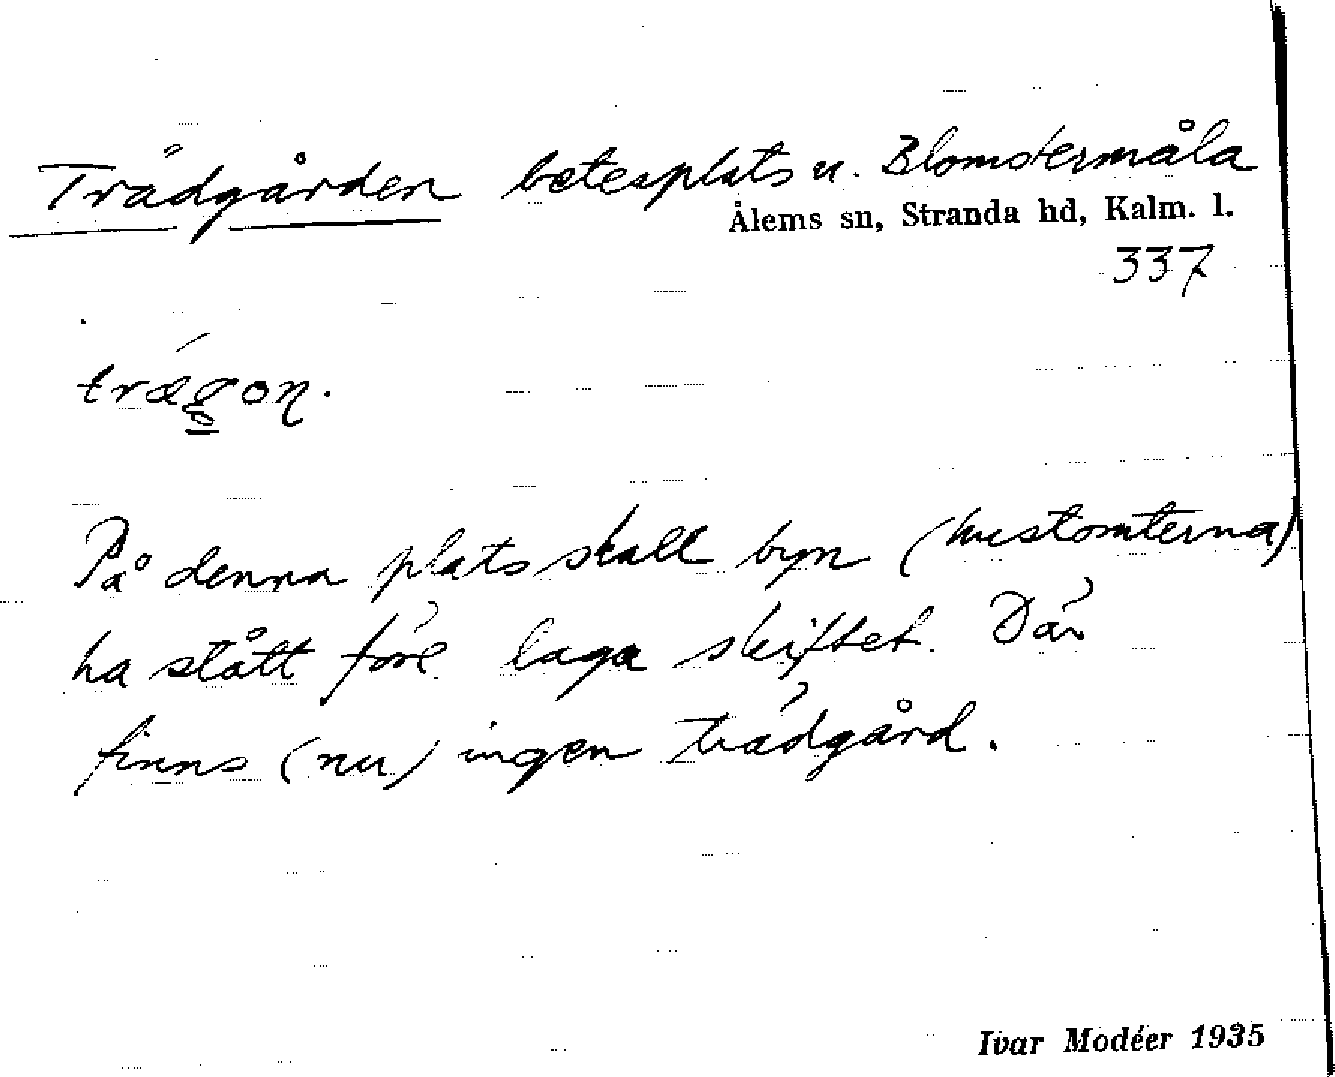 Trädgården betesplats u. Blomstermåla
Ålems sn, Stranda hd, Kalm. l.
337
På denna plats skall byn (hustomterna)
ha stått före laga skiftet. Där
finns (nu) ingen trädgård.
Ivar Modéer 1935